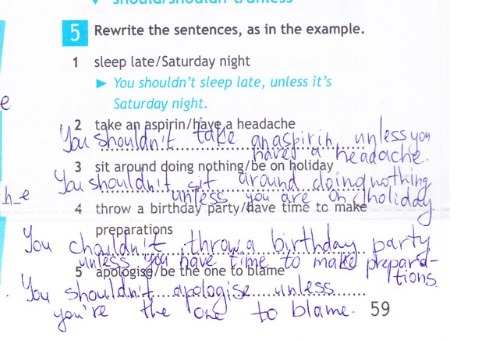 should/shouldn't/unless
5 Rewrite the sentences, as in the example.
1 sleep late/Saturday night
► You shouldn't sleep late, unless it's
Saturday night.
e
2 take an aspirin/have a headache
You shouldn't take an aspirin, unless you
have a headache.
3 sit around doing nothing/be on holiday
You shouldn't sit around doing nothing
unless you are on holiday.
4 throw a birthday party/have time to make
preparations
You chouldn't throw a birthday party
unless you have time to make prepara-
tions
5 apologise/be the one to blame
You shouldn't apologise unless
you're the one to blame.
59